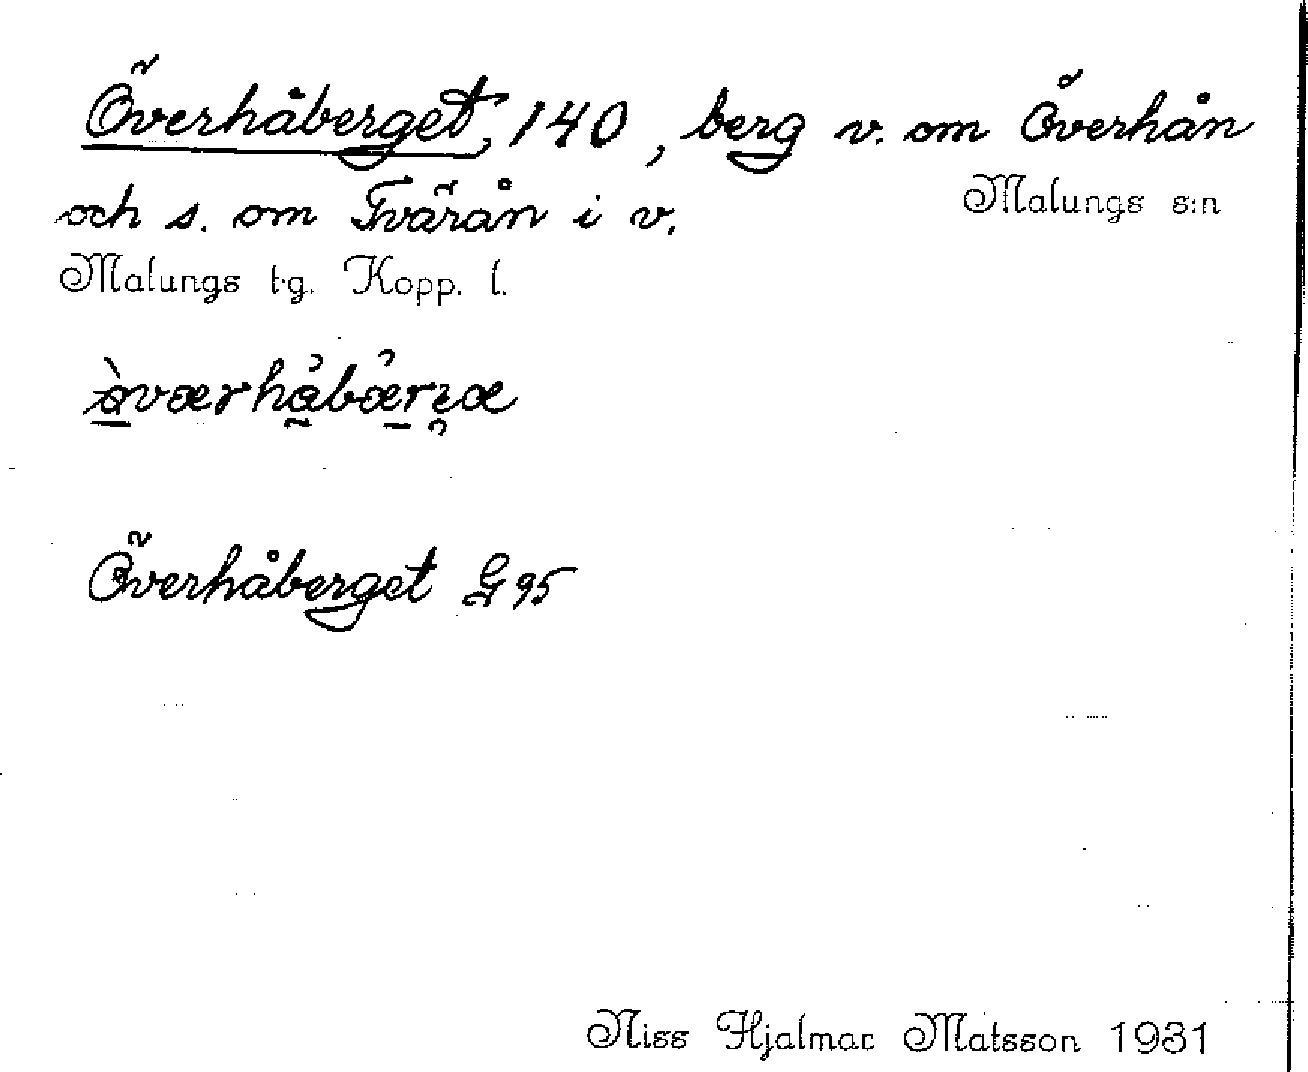 Överhåberget, 140, berg v. om Överhån
och s. om Tvärån i v.
Malungs s:n
Malungs tg. Kopp. l.
Överhåberget G 95
Niss Hjalmar Matsson 1931